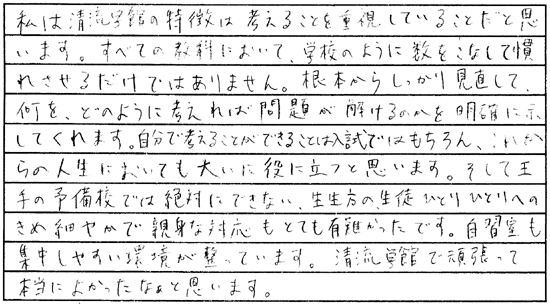 私は清流学館の特徴は考えることを重視していることだと思
います。すべての教科において、学校のように数をこなして慣
れさせるだけではありません。根本からしっかり見直して、
何を、どのように考えれば問題が解けるのかを明確に示
してくれます。自分で考えることができることは入試ではもちろん、これか
らの人生においても大いに役に立つと思います。そして王
手の予備校では絶対にできない、生生方の生徒ひとりひとりへの
きめ細やかで親身な対応もとても有難かったです。自習室も
集中しやすい環境が整っています。清流学館で頑張って
本当によかったなぁと思います。